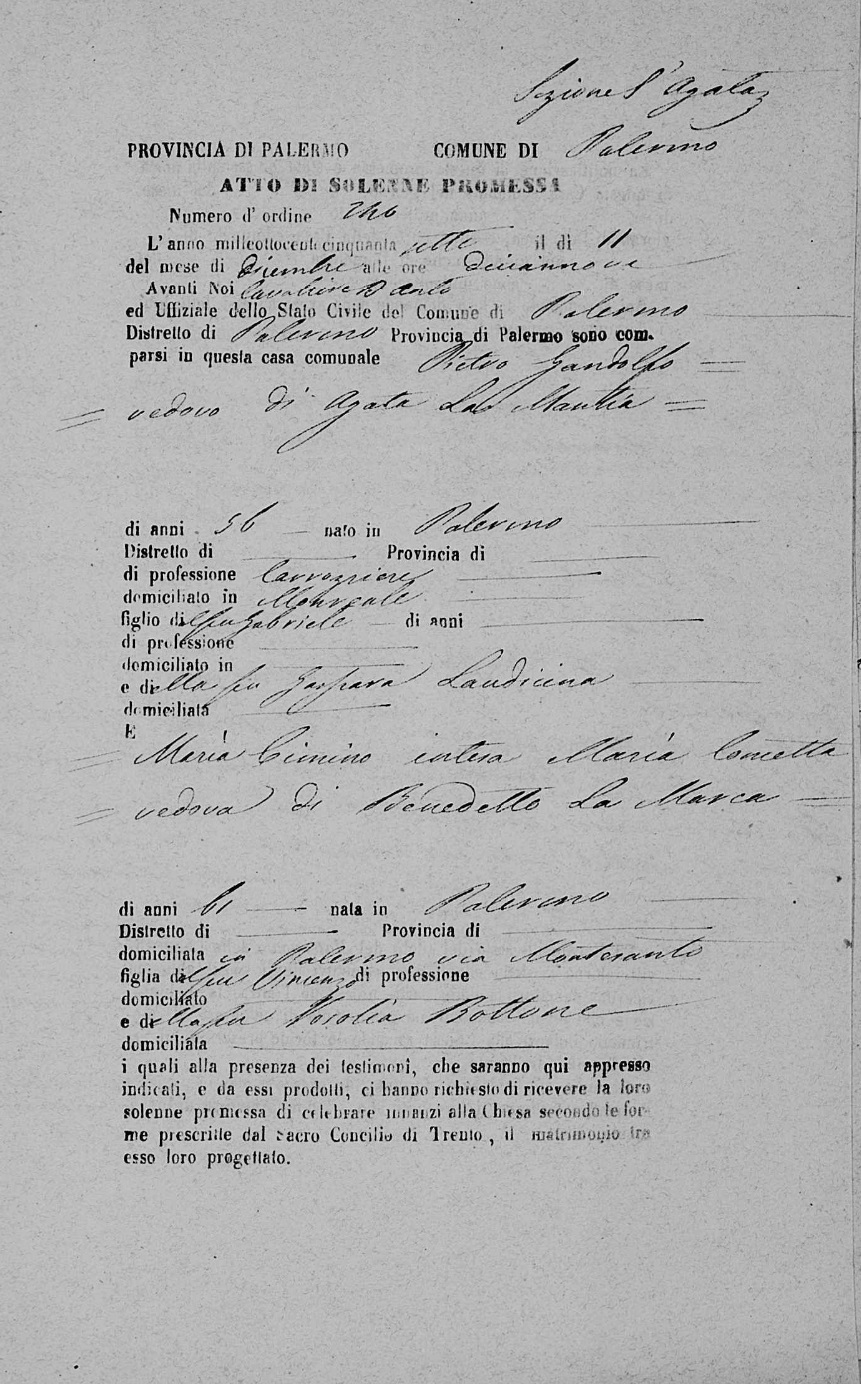 Sezione S. Agata
PROVINCIA DI PALERMO COMUNE DI Palermo
ATTO DI SOLENNE PROMESSA
Numero d' ordine
L' anno milleottocento cinquanta sette il di 11
del mese di Dicembre alle ore diciannove
Avanti Noi Cavaliere
ed Uffiziale dello Stato Civile del Comune di Palermo
Distretto di Palermo Provincia di Palermo sono com-
parsi in questa casa comunale Pietro Gandolfo =
= vedovo di Agata La Mantia =
di anni 56 nato in Palermo
Distretto di Provincia di
di professione Carrozziere
domiciliato in Monreale
figlio del fu Gabriele di anni
di professione
domiciliato in
e della fu Gaspara Laudicina
domiciliata
E
= Maria Cimino intesa Maria Cometta
= vedova di Benedetto La Marca =
di anni 61 nata in Palermo
Distretto di Provincia di
domiciliata in Palermo via Montesanto
figlia del fu Vincenzo di professione
domiciliato
e della fu Rosolia Bottone
domiciliata
i quali alla presenza dei testimoni, che saranno qui appresso
indicati, e da essi prodotti, ci hanno richiesto di ricevere la loro
solenne promessa di celebrare innanzi alla Chiesa secondo le for-
me prescritte dal Sacro Concilio di Trento, il matrimonio tra
esso loro progettato.